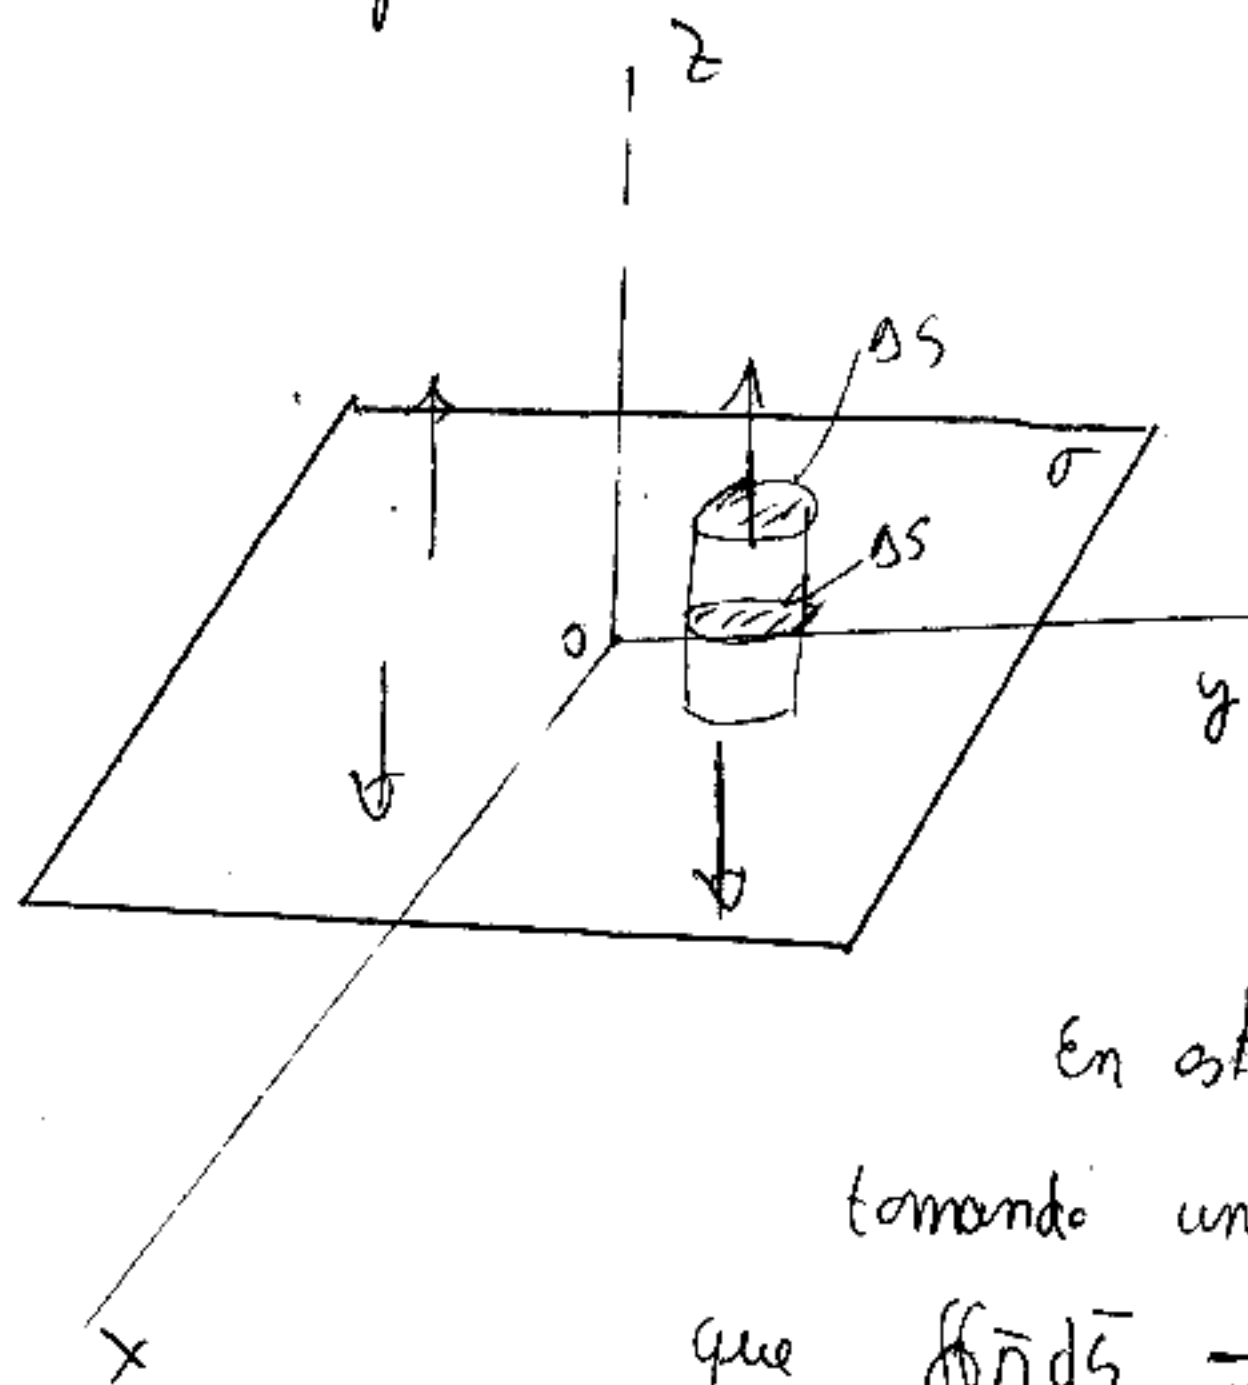 z
ΔS
σ
ΔS
O
y
En
tomando un
X
que ∯ n̄ dS̄